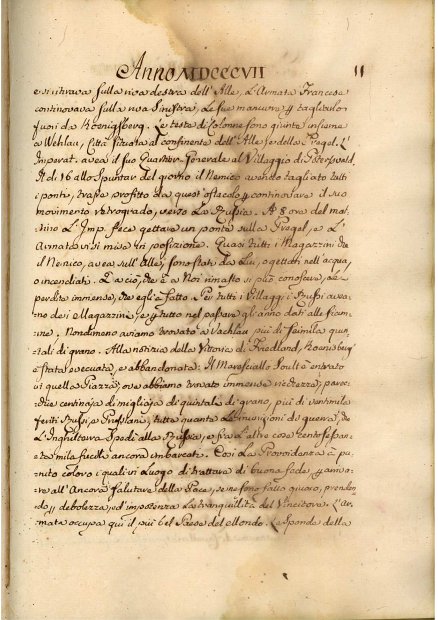 Anno MDCCCVII 11
e si ritirava sulla riva destra dell'Alle, L'Armata Francese
continovava sulla riva Sinistra, le sue manuvre p tagliarlo
fuori da Koenigsberg. Le teste di Colonne sono giunte insieme
a Wehlau, Città situata al confluente dell'Alle, e della Pregel. L'
Imperat. avea il suo Quartier Generale al Villaggio di Peterswald
Il di 16 allo Spuntar del giorno il Nemico avendo tagliato tutti
i ponti, trasse profitto da quest'ostacolo p continovare il suo
movimento retrogrado, verso La Russia. A 8 ore del mat-
tino L'Imp. fece gettare un ponte sulla Pregel, e L'
Armata vi si mise in posizione. Quasi tutti i Magazzini che
il Nemico, avea sull'Alle, sono stati da Lui, o gettati nell'acqua,
o incendiati. Da ciò, che è a Noi rimasto si può conoscere, La
perdita immensa, che egli à fatto. Per tutti i Villaggi i Russi avea-
no dei Magazzini, e p tutto nel passare gli anno dati alle fiam-
me. Nondimeno abbiamo trovato a Vachlau più di seimila quin-
tali di grano. Alla notizia della Vittoria di Friedland, Koenisberg
è stata evacuata, e abbandonata. Il Maresciallo Soult è entrato
in quella Piazza, ove abbiamo trovato immense richezze, parec-
chie centinaja di migliaja di quintali di grano, più di ventimila
feriti Russi, e Prussiani, tutte quante Le munizioni da guerra, che
L'Inghilterra Spedì alla Russia, e fra l'altre cose cento sessan-
ta mila fucili ancora imbarcati. Così La Providenza à
punito coloro i quali in Luogo di trattare di buona fede p anno-
re all'Ancora salutare della Pace, se ne sono fatto giuoco, prenden-
do p debolezza, ed impotenza La tranquillità del Vincitore. L'ar-
mata occupa qui il più bel Paese del Mondo. Le Sponde della